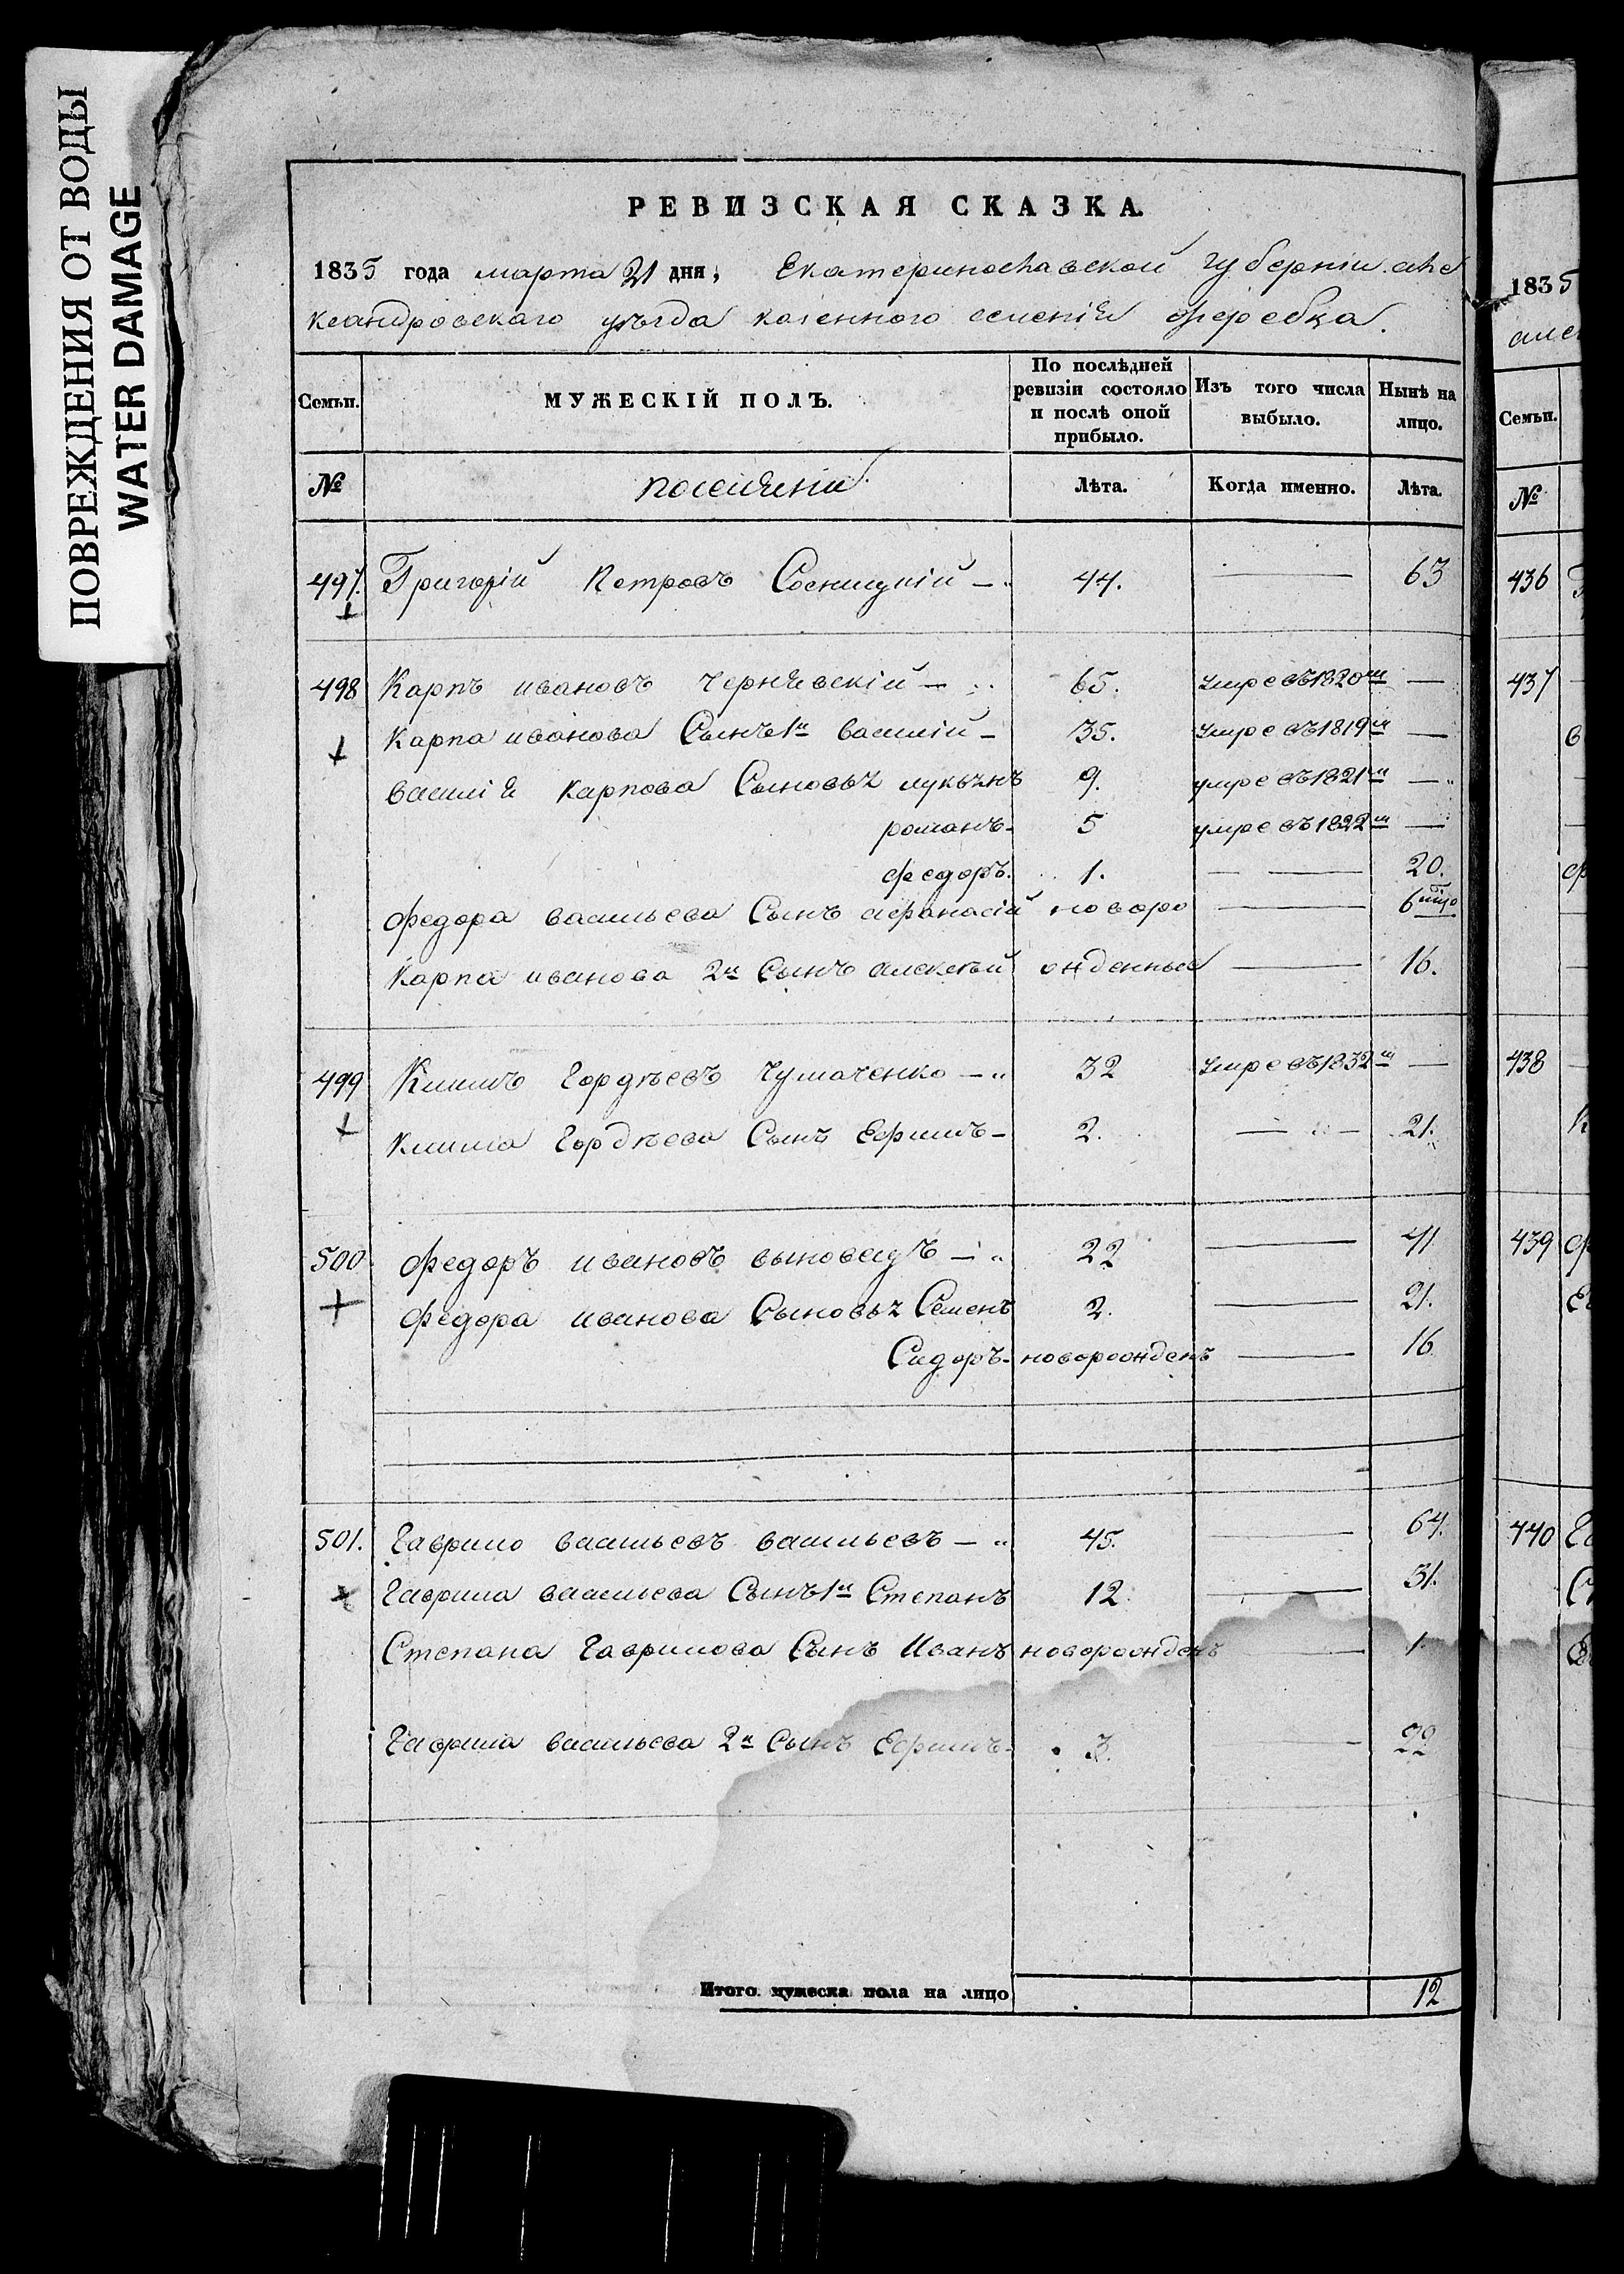 ПОВРЕЖДЕНИЯ ОТ ВОДЫ
WATER DAMAGE
РЕВИЗСКАЯ СКАЗКА.
1835 года марта 21 дня, Екатеринославской губерніи але
ксандровскаго уѣзда казенного селенія жеребца.
Семьи. МУЖЕСКІЙ ПОЛЪ. По послѣдней ревизіи состояло и послѣ оной прибыло. Изъ того числа выбыло. Нынѣ на лицо.
№ поселяніи Лѣта. Когда именно. Лѣта.
497. Григорій Петровъ Сосницкій 44. — 63
498 Карпъ ивановъ Чернявскій 65. умре въ 1820м —
Карпа иванова Сынъ 1й василій 35. умре въ 1819м —
василія Карпова Сыновья лукьянъ 9. умре въ 1821м —
романъ 5 умре въ 1822м —
федоръ. 1. — 20.
федора васильева Сынъ афанасій новоро — 6
Карпа иванова 2й Сынъ алексѣй жденные — 16.
499 Климъ Гордѣевъ Чумаченко 32 умре въ 1832м —
Клима Гордѣева Сынъ Ефимъ 2. — 21.
500 федоръ ивановъ 22 — 41
федора иванова Сыновья Семенъ 2. — 21.
Сидоръ новорожденъ — 16
501. Гаврило васильевъ васильевъ 45. — 64.
Гаврила васильева Сынъ 1й Степанъ 12 — 31.
Степана Гаврилова Сынъ Иванъ новорожденъ — 1
Гаврила васильева 2й Сынъ Ефимъ 3. — 22
Итого мужеска пола на лицо 12
1835
алек
Семьи.
№
436
437
438
439
440